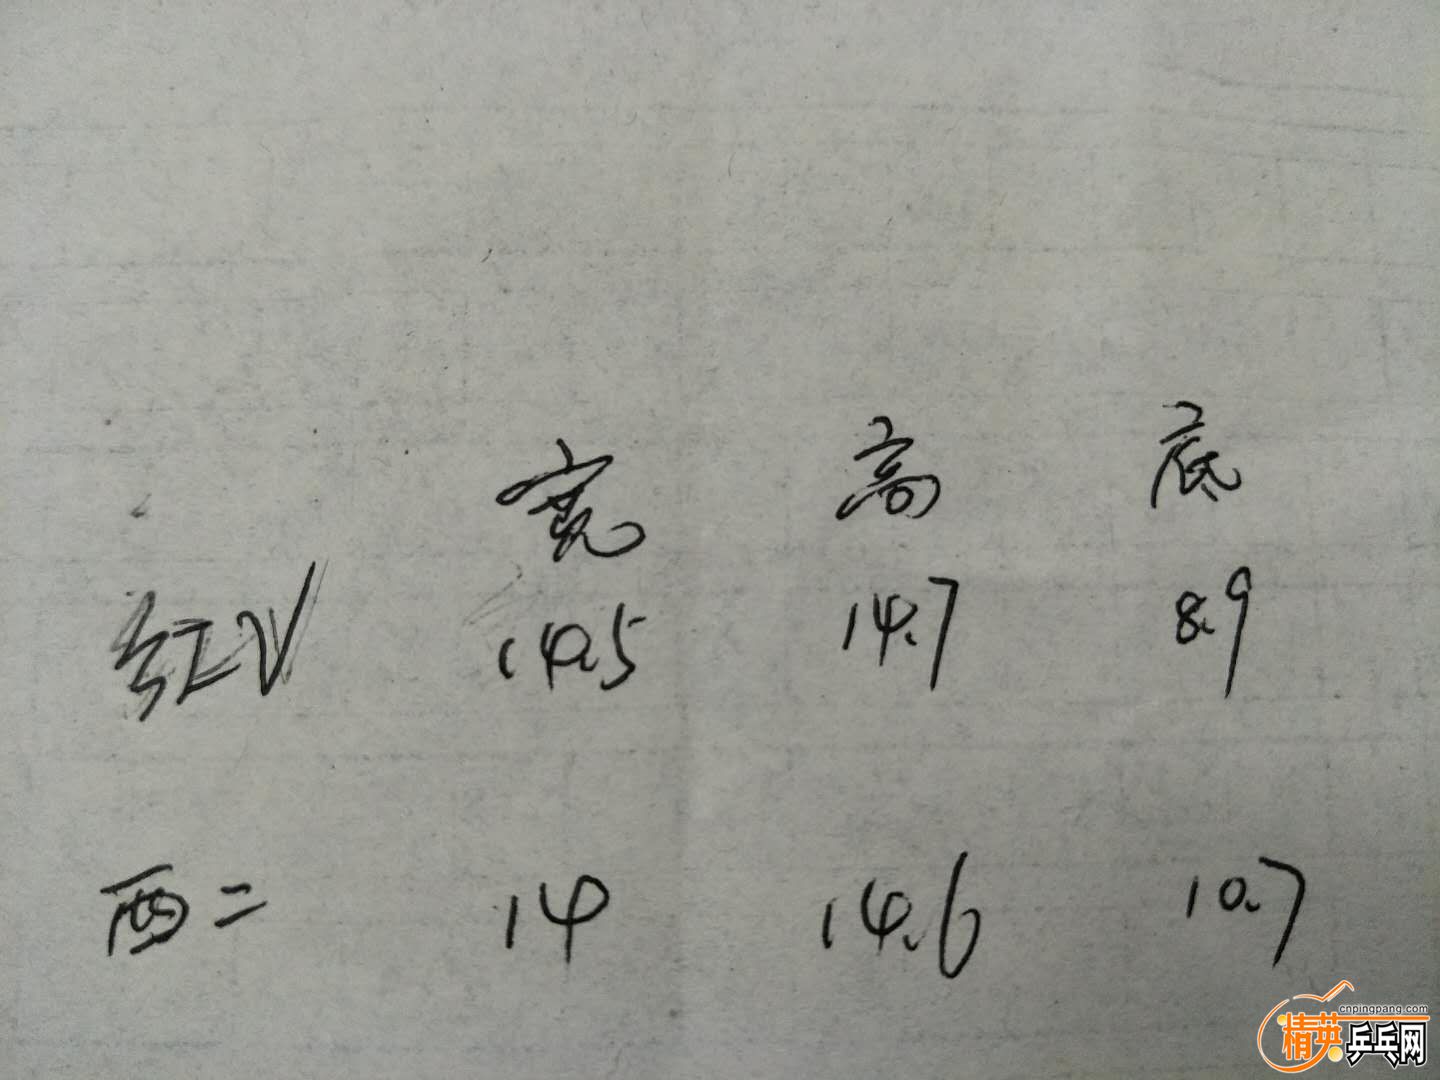 宽 高 底
红V 14.5 14.7 8.9
西二 14 14.6 10.7
cnpingpang.com
精英乒乓网